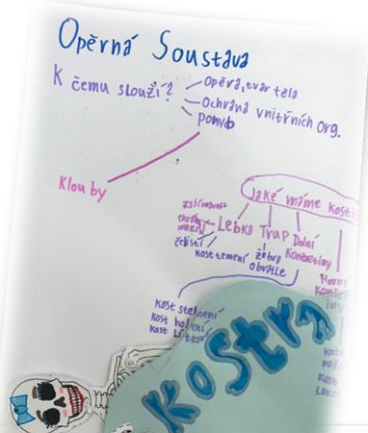 Opěrná Soustava
K čemu slouží?
Opěra, tvar těla
Ochrana vnitřních org.
pohyb
Klouby
Jaké máme kosti
Lebka
Trup
Dolní
Končetiny
Horní
čelistí
Kost temení
žebra
obratle
Kost stehenní
Kost holení
Kostra